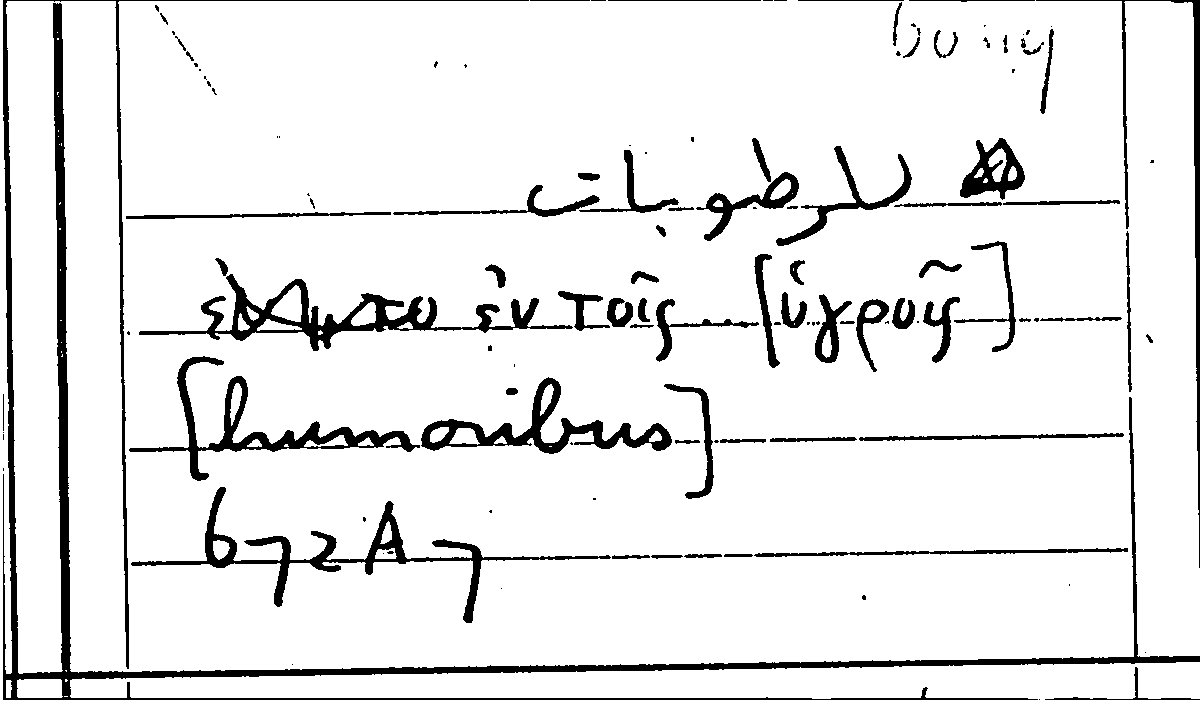 للرطوبات
ἐν τοῖς ... [ὑγροῖς]
[humoribus]
672 A 7